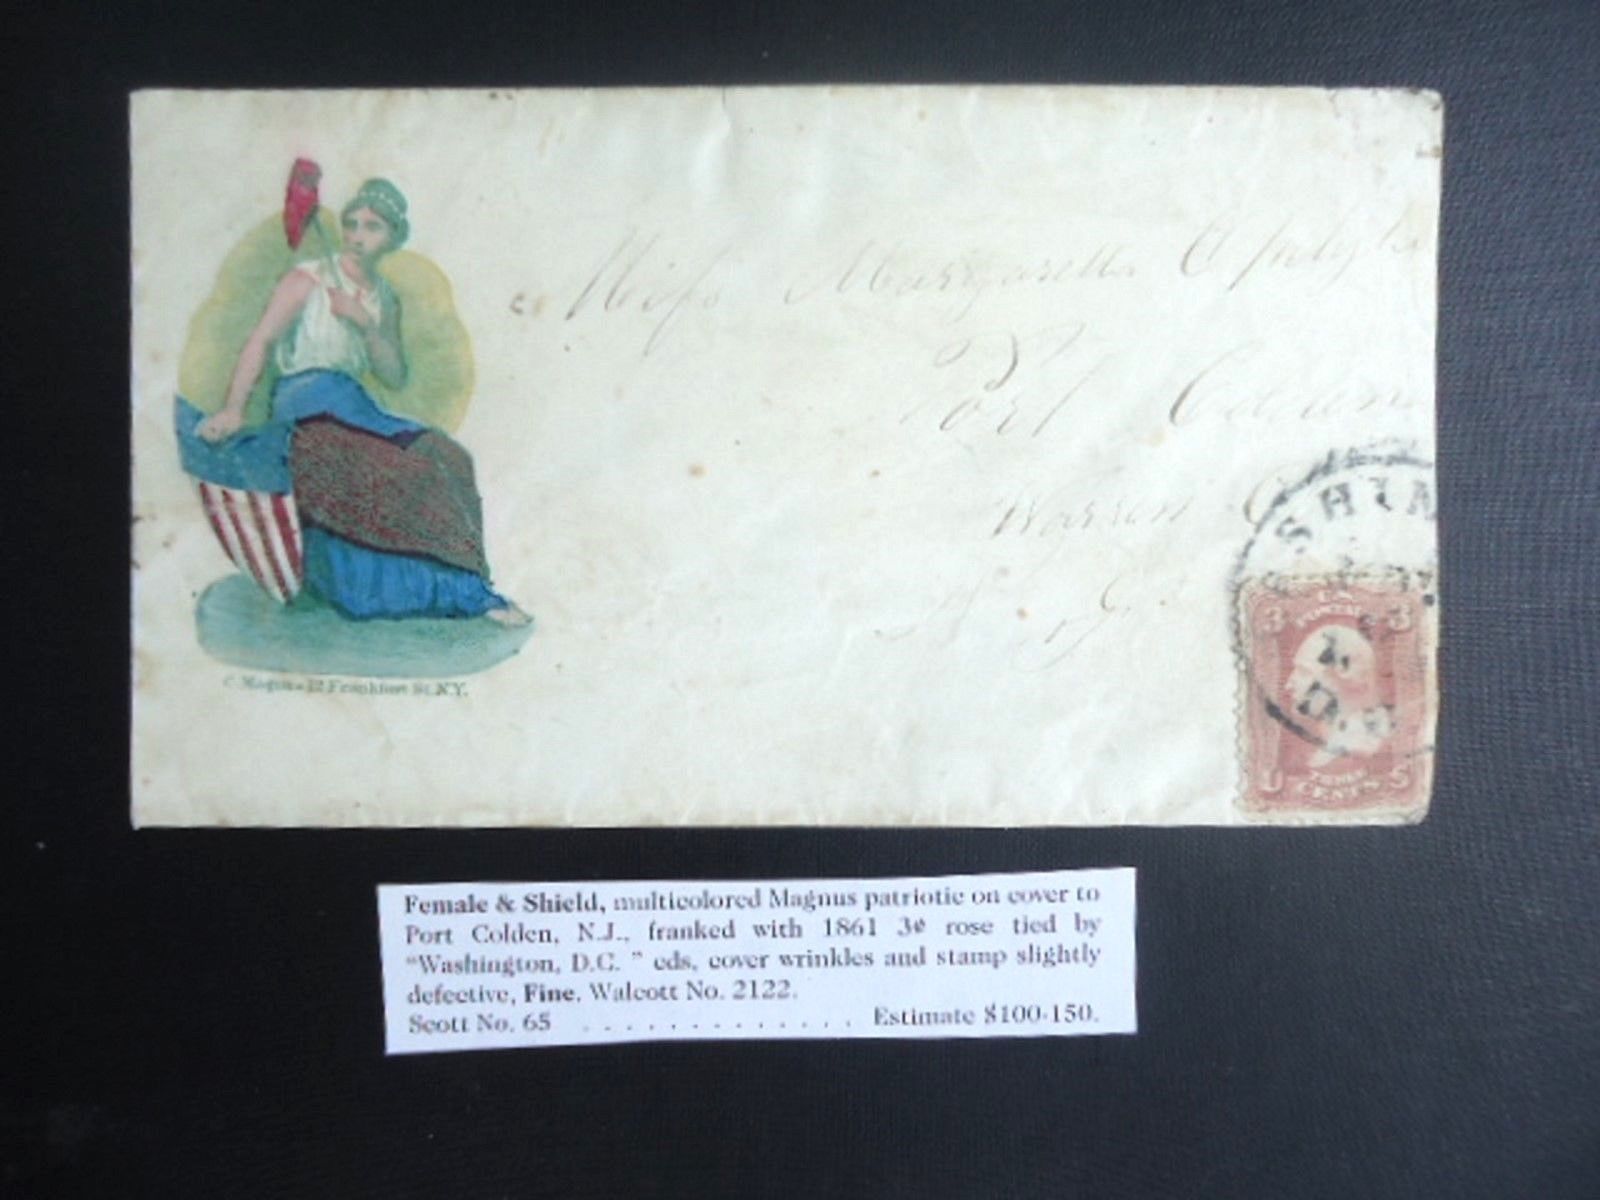 Miss Margaretta A
Port Colden
Warren
N. J.
SHIN
D.C.
3 U.S. 3
POSTAGE
U THREE S
CENTS
C. Magnus 12 Frankfort St. N.Y.
Female & Shield, multicolored Magnus patriotic on cover to
Port Colden, N.J., franked with 1861 3¢ rose tied by
"Washington, D.C. " cds, cover wrinkles and stamp slightly
defective, Fine. Walcott No. 2122.
Scott No. 65 . . . . . . . . . . . . . Estimate $100-150.